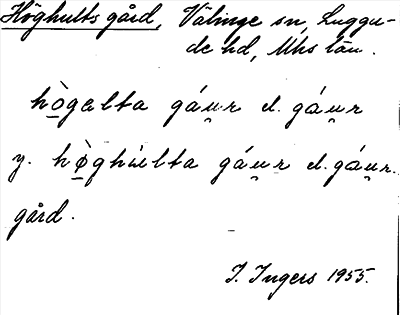 Höghults gård, Välinge sn, Luggu-
de hd, Mhs län.
hò̲galta gáu̯r el. gáu̯r
y. hø̲̀ghùlta gáu̯r el. gáu̯r.
gård.
I. Ingers 1955.